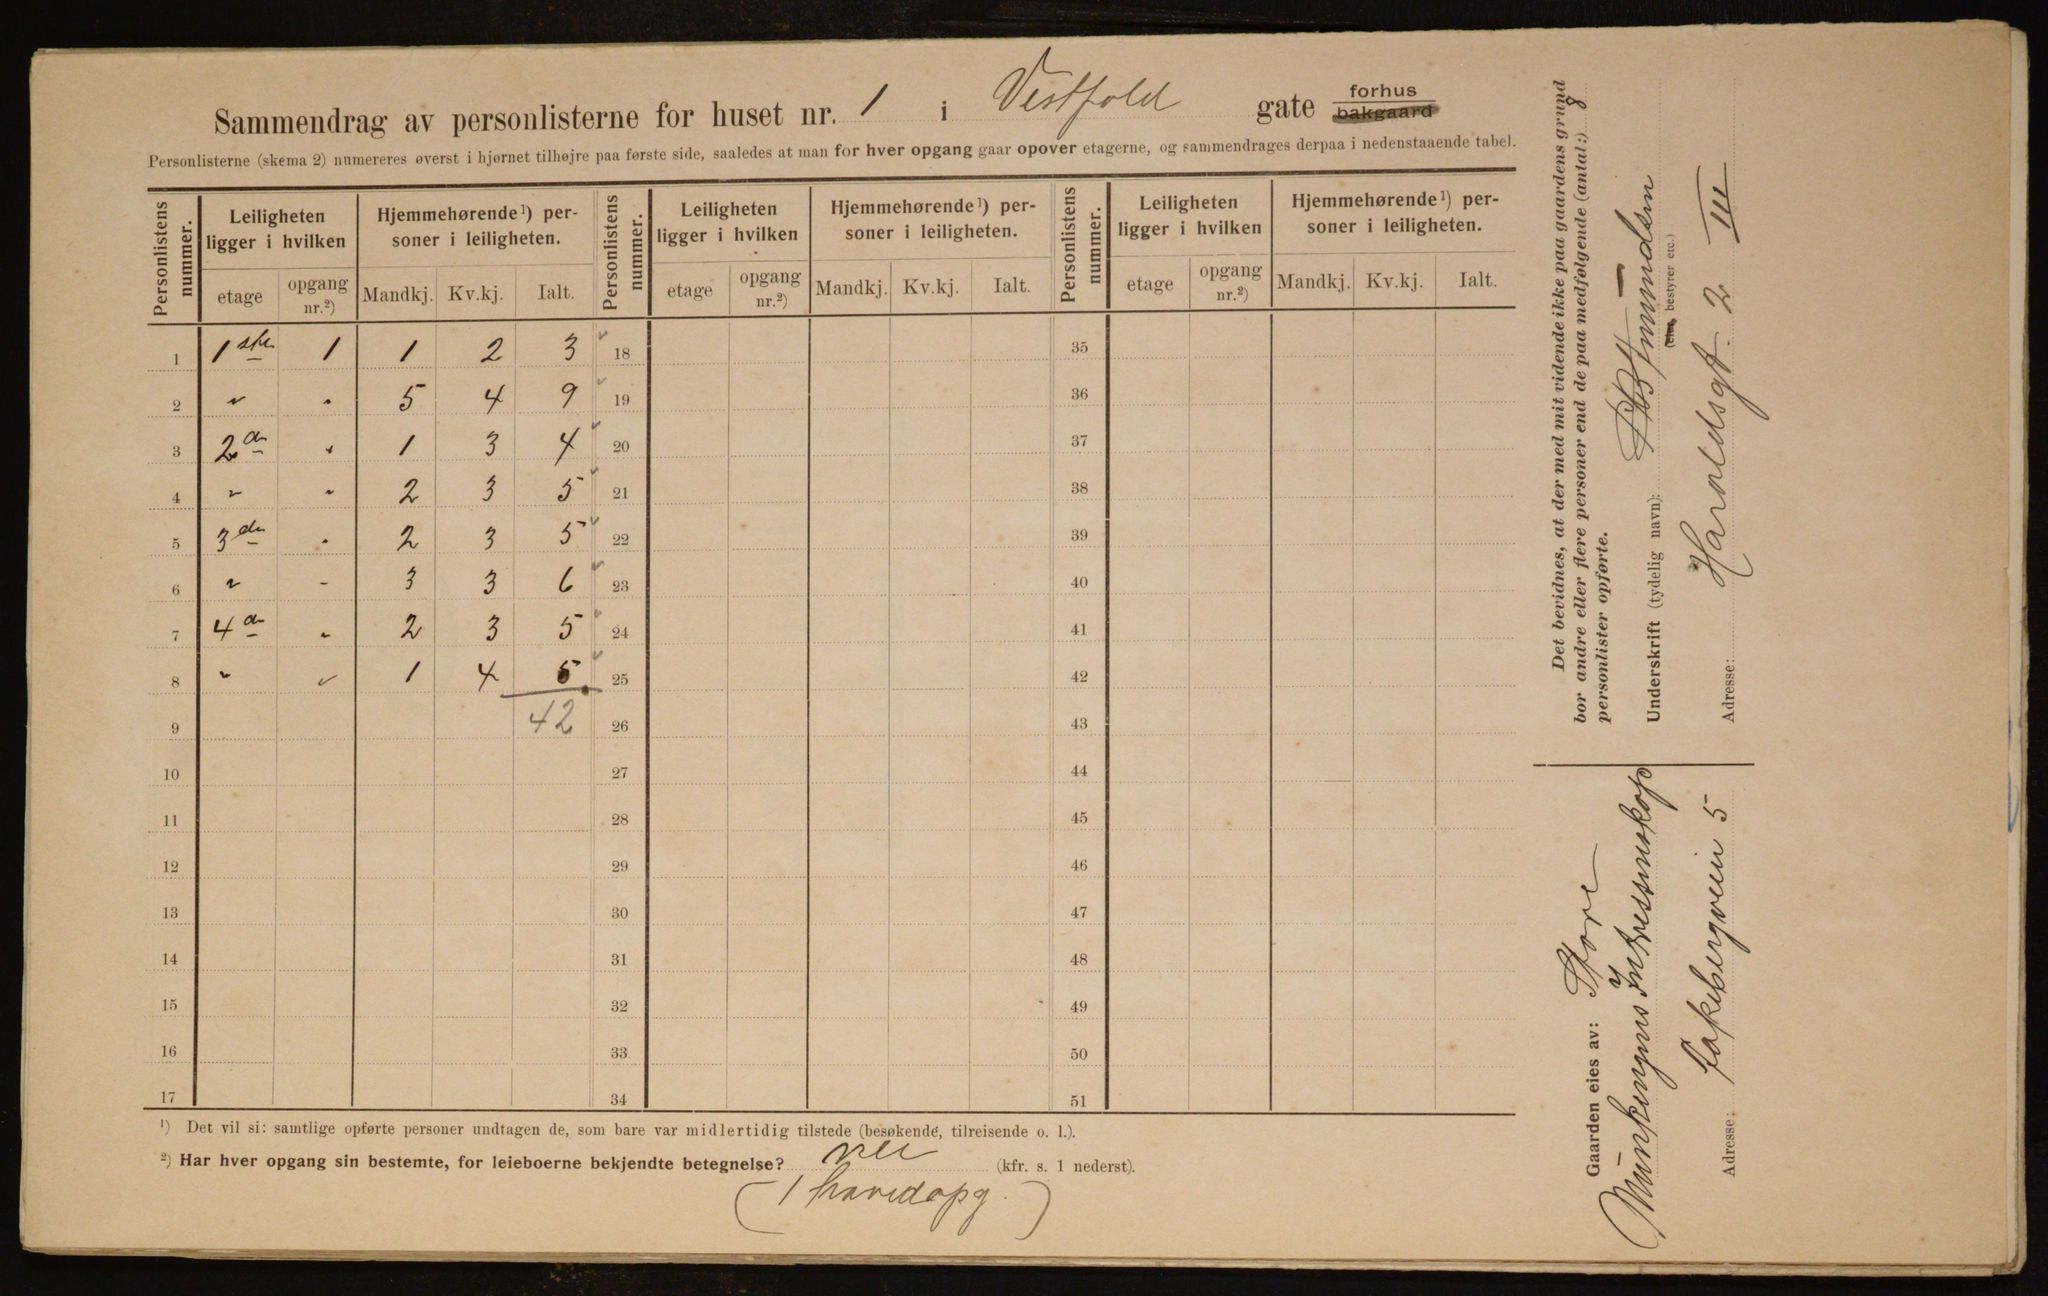 Sammendrag av personlisterne for huset nr. 1 i Vestfold gate forhus bakgaard
Personlisterne (skema 2) numereres øverst i hjørnet tilhøjre paa første side, saaledes at man for hver opgang gaar opover etagerne, og sammendrages derpaa i nedenstaaende tabel.
Personlistens nummer. Leiligheten ligger i hvilken Hjemmehørende¹) personer i leiligheten. Personlistens nummer. Leiligheten ligger i hvilken Hjemmehørende¹) personer i leiligheten. Personlistens nummer. Leiligheten ligger i hvilken Hjemmehørende¹) personer i leiligheten.
etage opgang nr.²) Mandkj. Kv.kj. Ialt. etage opgang nr.²) Mandkj. Kv.kj. Ialt. etage opgang nr.²) Mandkj. Kv.kj. Ialt.
1 1ste 1 1 2 3 18 35
2 " " 5 4 9 19 36
3 2den " 1 3 4 20 37
4 " " 2 3 5 21 38
5 3die " 2 3 5 22 39
6 " " 3 3 6 23 40
7 4de " 2 3 5 24 41
8 " " 1 4 5 25 42
9 42 26 43
10 27 44
11 28 45
12 29 46
13 30 47
14 31 48
15 32 49
16 33 50
17 34 51
¹) Det vil si: samtlige opførte personer undtagen de, som bare var midlertidig tilstede (besøkende, tilreisende o. l.).
²) Har hver opgang sin bestemte, for leieboerne bekjendte betegnelse? nei (kfr. s. 1 nederst).
(1 hovedopg.)
Det bevidnes, at der med mit vidende ikke paa gaardens grund
bor andre eller flere personer end de paa medfølgende (antal:) 8
personlister opførte.
Underskrift (tydelig navn):
(eier, bestyrer etc.)
Adresse: Haraldsgt. 2 III
Gaarden eies av: Store
Munkengens Interessentskap
Adresse: Fakkbergveien 5